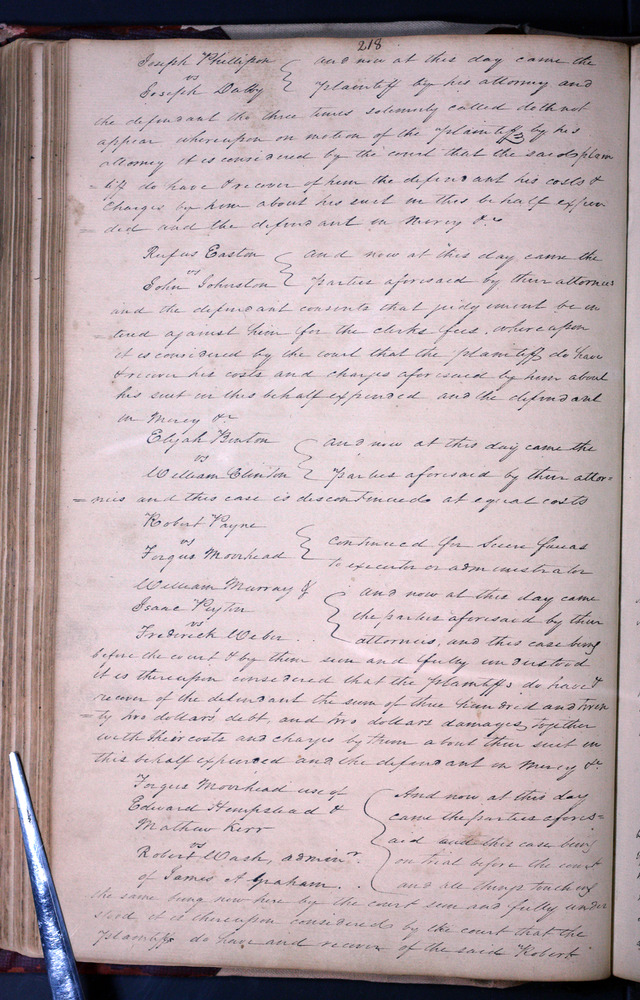 218
Joseph Phillipson } and now at this day came the
vs
Joseph Dalby } plaintiff by his attorney and
the defendant tho three times solemnly called doth not
appear whereupon on motion of the plaintiff by his
attorney it is considered by the court that the said plain
= tiff do have & recover of him the defendant his costs &
charges by him about his suit in this behalf expen
ded and the defendant in mercy &c
Rufus Easton } and now at this day came the
vs
John Johnston } parties aforesaid by their attornies
and the defendant consents that judgement be en
= tered against him for the clerks fees, whereupon
it is considered by the court that the plaintiff do have
& recover his costs and charges aforesaid by him about
his suit in this behalf expended and the defendant
in mercy &c
Elijah Benton } and now at this day came the
vs
William Clinton } parties aforesaid by their attor=
= nies and this case is discontinued at equal costs
Robert Payne
vs } continued for Scire facias
Fergus Moorhead } to executor or administrator
William Murray &
Isaac Peyton } And now at this day came
vs the parties aforesaid by their
Frederick Weber . . attornies, and this case being
before the court & by them seen and fully understood
it is thereupon considered that the plaintiffs do have &
recover of the defendant the sum of three hundred and twen
= ty two dollars debt, and two dollars damages, together
with their costs and charges by them about their suit in
this behalf expended and the defendant in mercy &c
Fergus Moorhead use of } And now at this day
Edward Hempstead & came the parties afores=
Mathew Kerr aid and this case being
vs
Robert Wash, adminr. on trial before the court
of James A Graham. . and all things touching
the same being now here by the court seen and fully under
stood it is thereupon considered by the court that the
plaintiffs do have and recover of the said Robert